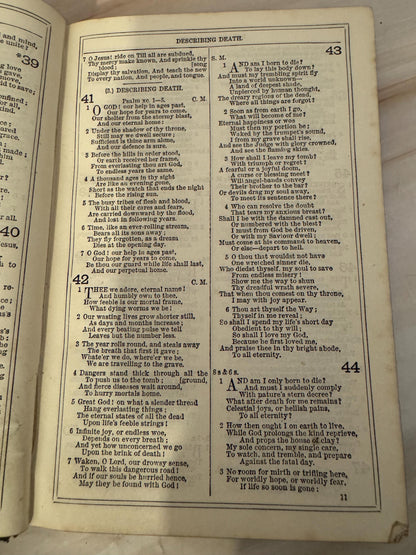 and mind,
e unite?
39
love
gave,
eize
d to save;
nfined;
this
came,
g
s made;
im
all.
40
Jesus,
DESCRIBING DEATH.
7 O Jesus! ride on Till all are subdued,
Thy mercy make known, And sprinkle thy
blood; [song
Display thy salvation, And teach the new
To every nation, And people, and tongue.
(3.) DESCRIBING DEATH.
41 Psalm xc. 1—5. C. M.
1 O GOD! our help in ages past,
Our hope for years to come,
Our shelter from the stormy blast,
And our eternal home:
2 Under the shadow of thy throne,
Still may we dwell secure;
Sufficient is thine arm alone,
And our defence is sure.
3 Before the hills in order stood,
Or earth received her frame,
From everlasting thou art God,
To endless years the same.
4 A thousand ages in thy sight
Are like an evening gone,
Short as the watch that ends the night
Before the rising sun.
5 The busy tribes of flesh and blood,
With all their cares and fears,
Are carried downward by the flood,
And lost in following years.
6 Time, like an ever-rolling stream,
Bears all its sons away;
They fly forgotten, as a dream
Dies at the opening day.
7 O God! our help in ages past,
Our hope for years to come,
Be thou our guard while life shall last,
And our perpetual home.
42 C. M.
1 THEE we adore, eternal name!
And humbly own to thee,
How feeble is our mortal frame,
What dying worms we be!
2 Our wasting lives grow shorter still,
As days and months increase;
And every beating pulse we tell
Leaves but the number less.
3 The year rolls round, and steals away
The breath that first it gave;
Whate'er we do, where'er we be,
We are travelling to the grave.
4 Dangers stand thick through all the
To push us to the tomb; [ground,
And fierce diseases wait around,
To hurry mortals home.
5 Great God! on what a slender thread
Hang everlasting things;
The eternal states of all the dead
Upon life's feeble strings!
6 Infinite joy, or endless woe,
Depends on every breath;
And yet how unconcerned we go
Upon the brink of death!
7 Waken, O Lord, our drowsy sense,
To walk this dangerous road!
And if our souls be hurried hence,
May they be found with God!
43
S. M.
1 AND am I born to die?
To lay this body down?
And must my trembling spirit fly
Into a world unknown—
A land of deepest shade,
Unpierced by human thought,
The dreary regions of the dead,
Where all things are forgot?
2 Soon as from earth I go,
What will become of me?
Eternal happiness or woe
Must then my portion be;
Waked by the trumpet's sound,
I from my grave shall rise,
And see the Judge with glory crowned,
And see the flaming skies.
3 How shall I leave my tomb?
With triumph or regret?
A fearful or a joyful doom,
A curse or blessing meet?
Will angel-bands convey
Their brother to the bar?
Or devils drag my soul away,
To meet its sentence there?
4 Who can resolve the doubt
That tears my anxious breast?
Shall I be with the damned cast out,
Or numbered with the blest?
I must from God be driven,
Or with my Saviour dwell;
Must come at his command to heaven,
Or else—depart to hell.
5 O thou that wouldst not have
One wretched sinner die,
Who diedst thyself, my soul to save
From endless misery!
Show me the way to shun
Thy dreadful wrath severe,
That when thou comest on thy throne,
I may with joy appear.
6 Thou art thyself the Way;
Thyself in me reveal;
So shall I spend my life's short day
Obedient to thy will;
So shall I love my God,
Because he first loved me,
And praise thee in thy bright abode,
To all eternity.
44
8s & 6s.
1 AND am I only born to die?
And must I suddenly comply
With nature's stern decree?
What after death for me remains?
Celestial joys, or hellish pains,
To all eternity!
2 How then ought I on earth to live,
While God prolongs the kind reprieve,
And props the house of clay?
My sole concern, my single care,
To watch, and tremble, and prepare
Against the fatal day.
3 No room for mirth or trifling here,
For worldly hope, or worldly fear,
If life so soon is gone;
11